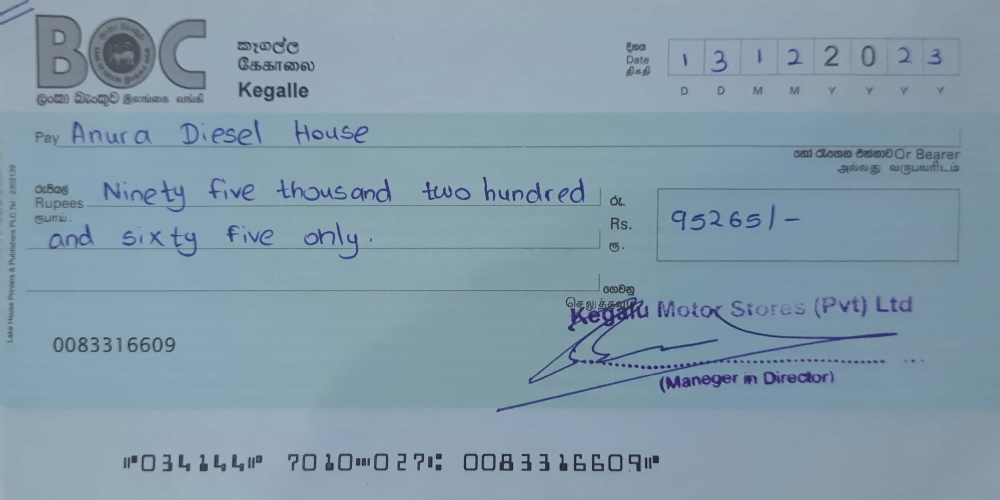 BOC
ලංකා බැංකුව இலங்கை வங்கி
කෑගල්ල
கேகாலை
Kegalle
දිනය
Date
திகதி
1 3 1 2 2 0 2 3
D D M M Y Y Y Y
Pay Anura Diesel House
හෝ රැගෙන එන්නාට Or Bearer
அல்லது வருபவரிடம்
රුපියල්
Rupees Ninety five thousand two hundred
ரூபாய்
and sixty five only.
රු.
Rs. 95265/-
ரூ.
ගෙවනු
செலுத்தவும்
Kegalu Motor Stores (Pvt) Ltd
(Maneger in Director)
0083316609
Lake House Printers & Publishers PLC Tel :
⑈034144⑈ 7010⑉027⑆ 0083316609⑈